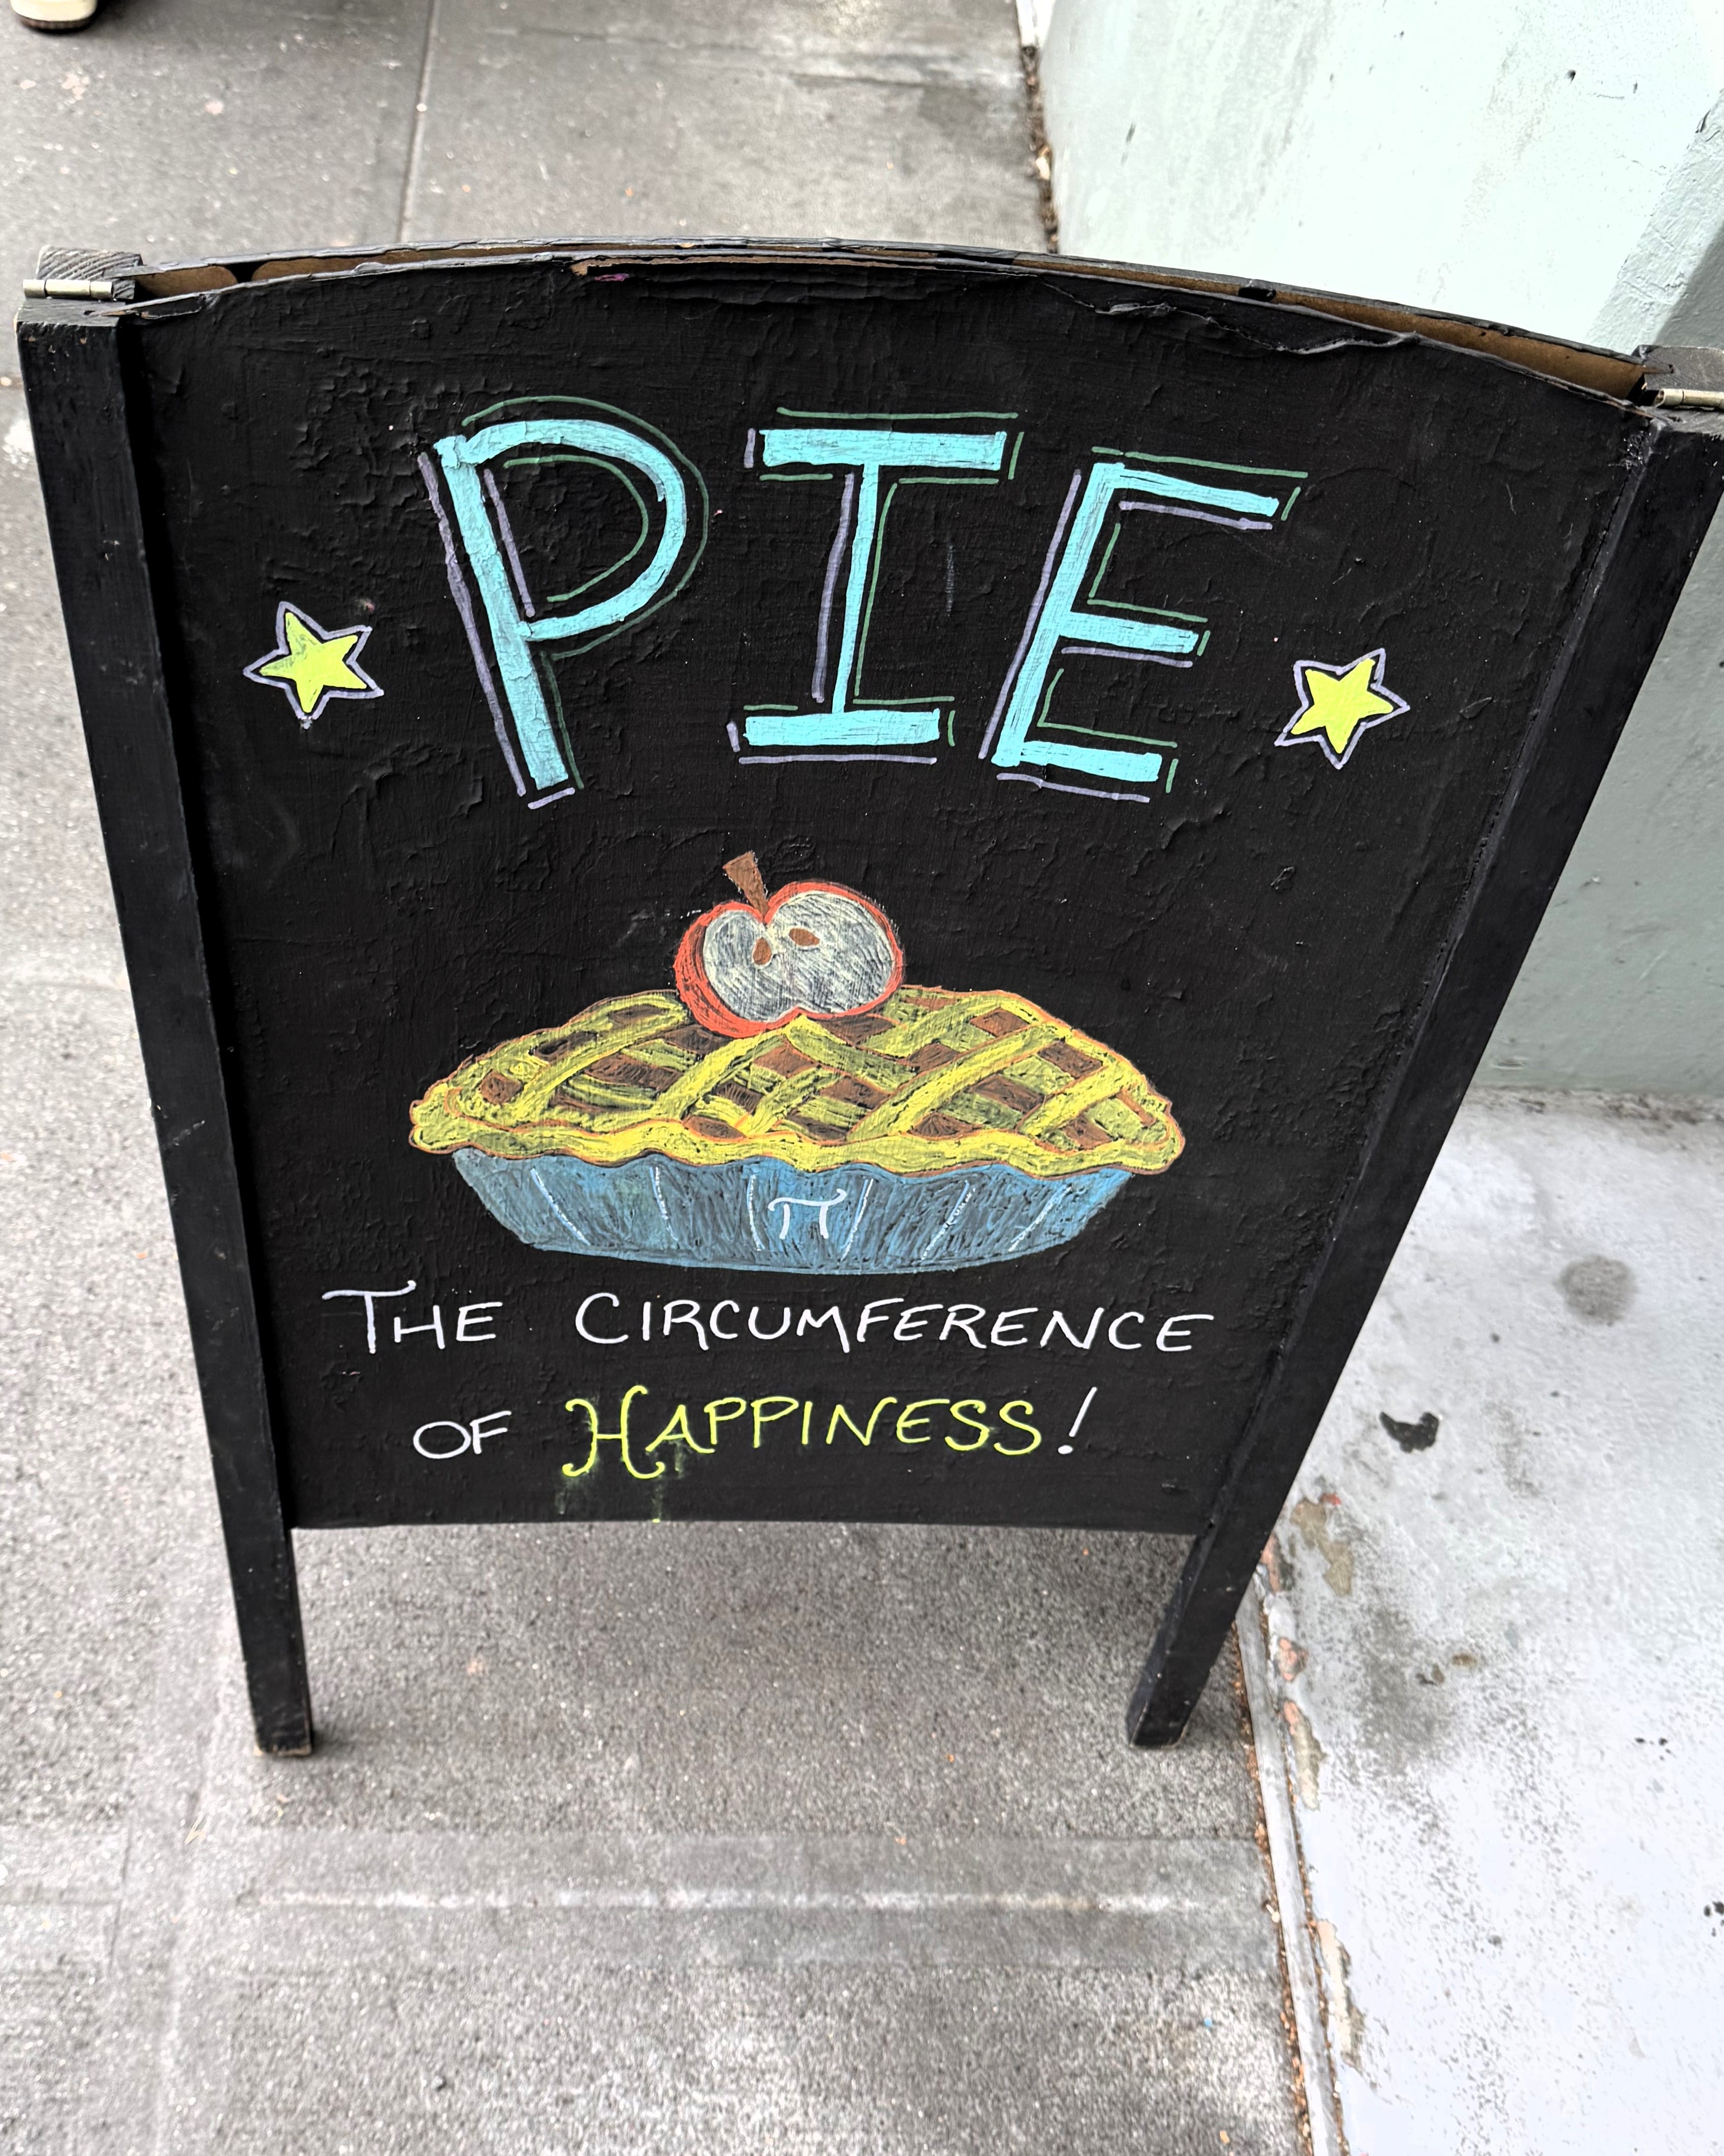 PIE
π
THE CIRCUMFERENCE
OF HAPPINESS!